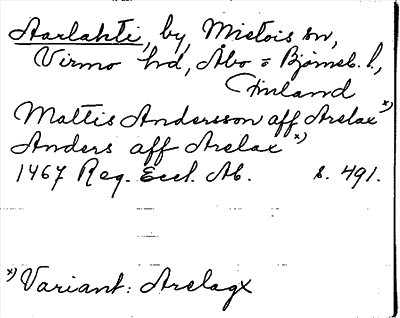 Aarlahti, by, Mietois sn,
Virmo hd, Åbo = Björneb. l.,
Finland
Mattis Andersson aff Arelax x)
Anders aff Arelax x)
1467 Reg. Eccl. Ab. s. 491.
x) Variant: Arelagx